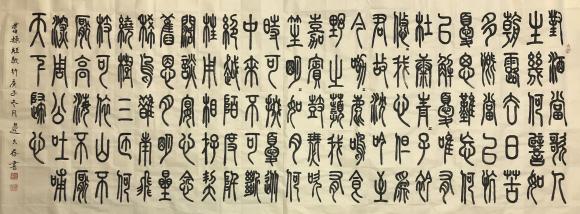 對酒當歌人
生幾何譬如
朝露去日苦
多慨當以慷
憂思難忘何
以解憂唯有
杜康青〻子衿
悠〻我心但為
君故沈吟至
今呦〻鹿鳴食
野之苹我有
嘉賓鼓瑟吹
笙明〻如月何
時可掇憂從
中來不可斷
絕越陌度阡
枉用相存契
闊談讌心念
舊恩月明星
稀烏鵲南飛
繞樹三匝何
枝可依山不
厭高海不厭
深周公吐哺
天下歸心
曹操短歌行庚子冬月